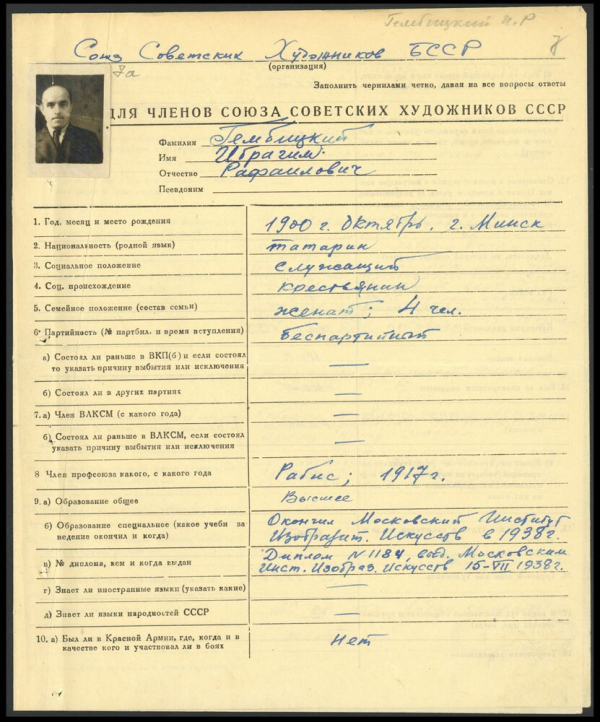 Гембицкий И.Р
Союз Советских Художников БССР
(организация)
7а
Заполнить чернилами четко, давая на все вопросы ответы
ДЛЯ ЧЛЕНОВ СОЮЗА СОВЕТСКИХ ХУДОЖНИКОВ СССР
Фамилия Гембицкий
Имя Ибрагим
Отчество Рафаилович
Псевдоним
1. Год, месяц и место рождения 1900 г. Октябрь. г. Минск
2. Национальность (родной язык) татарин
3. Социальное положение служащий
4. Соц. происхождение крестьянин
5. Семейное положение (состав семьи) женат; 4 чел.
6. Партийность (№ партбил. и время вступления) беспартийный
а) Состоял ли раньше в ВКП(б) и если состоял —
то указать причину выбытия или исключения
б) Состоял ли в других партиях —
7. а) Член ВЛКСМ (с какого года) —
б) Состоял ли раньше в ВЛКСМ, если состоял —
указать причину выбытия или исключения
8 Член профсоюза какого, с какого года Рабис; 1917г.
9. а) Образование общее Высшее
б) Образование специальное (какое учебн за- Окончил Московский Институт
ведение окончил и когда) Изобразит. Искусств в 1938г.
в) № диплома, кем и когда выдан Диплом N 1184, выд. Московским
Инст. Изобраз. Искусств 15-VII 1938г.
г) Знает ли иностранные языки (указать какие) —
д) Знает ли языки народностей СССР —
10. а) Был ли в Красной Армии, где, когда и в нет
качестве кого и участвовал ли в боях